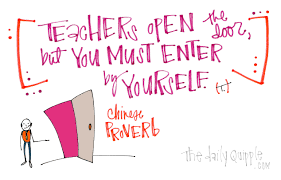 TEACHERS OPEN the door,
but YOU MUST ENTER
by YOURSELF.
chinese
PROVERB
the daily quipple
.com